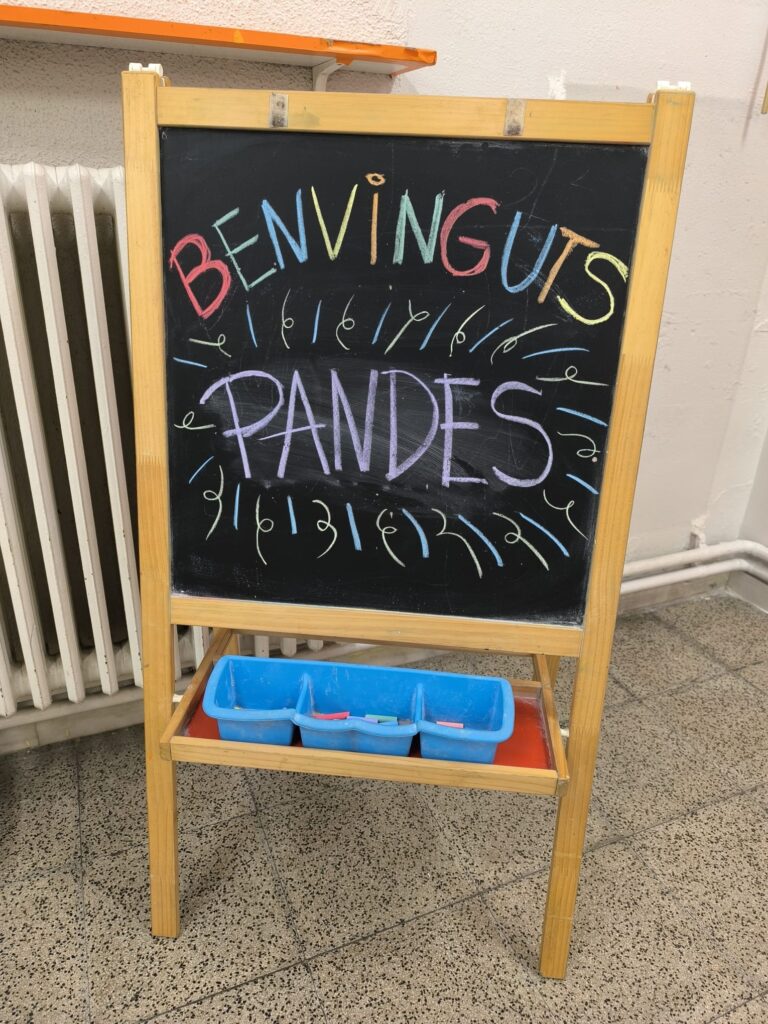 BENViNGUTS
PANDES